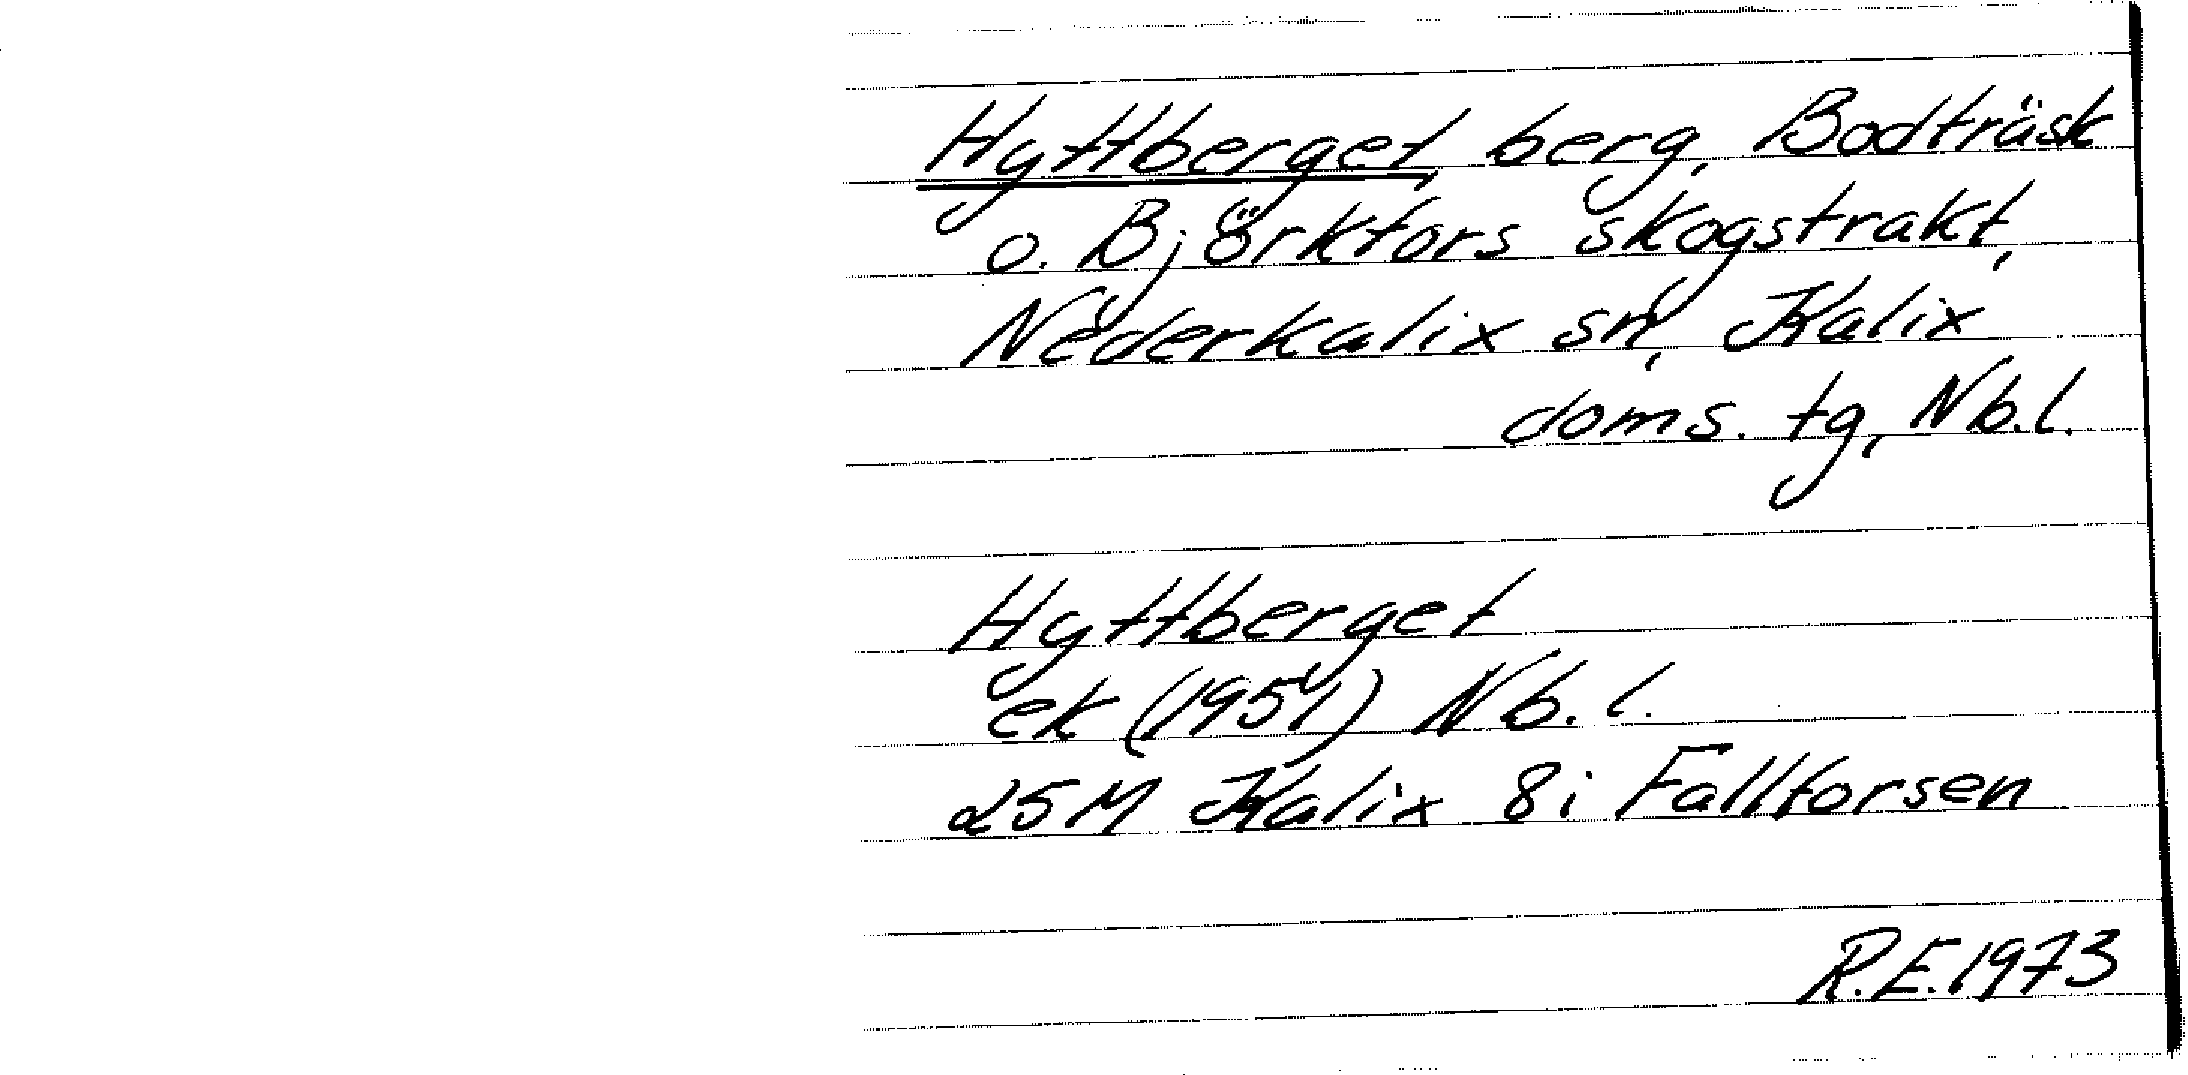 Hyttberget, berg, Bodträsk
o. Björkfors skogstrakt,
Nederkalix sn, Kalix
doms. tg, Nb.l.
Hyttberget
ek (1951) Nb.l.
25M Kalix 8i Fallforsen
R.E.1973